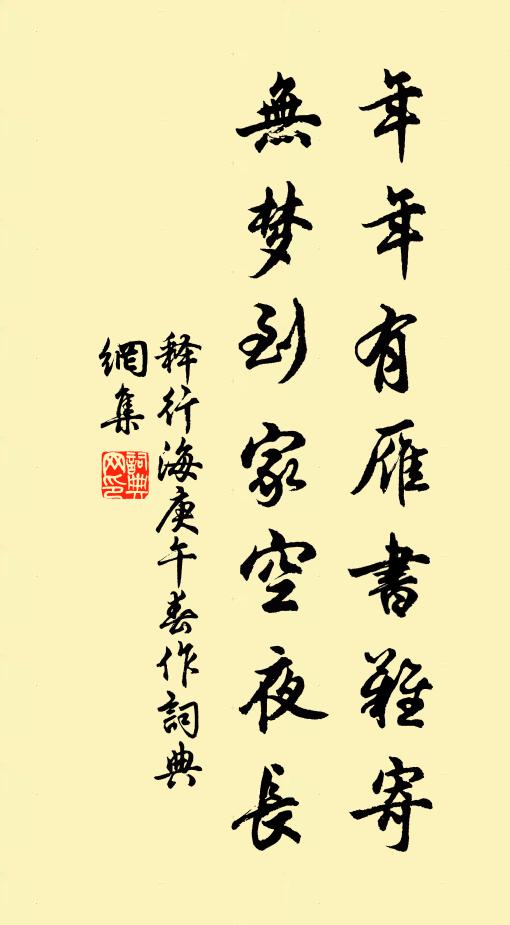 年年有雁書難寄
無梦到家空夜長
释行海庚午春作詞典
網集
詞典網印